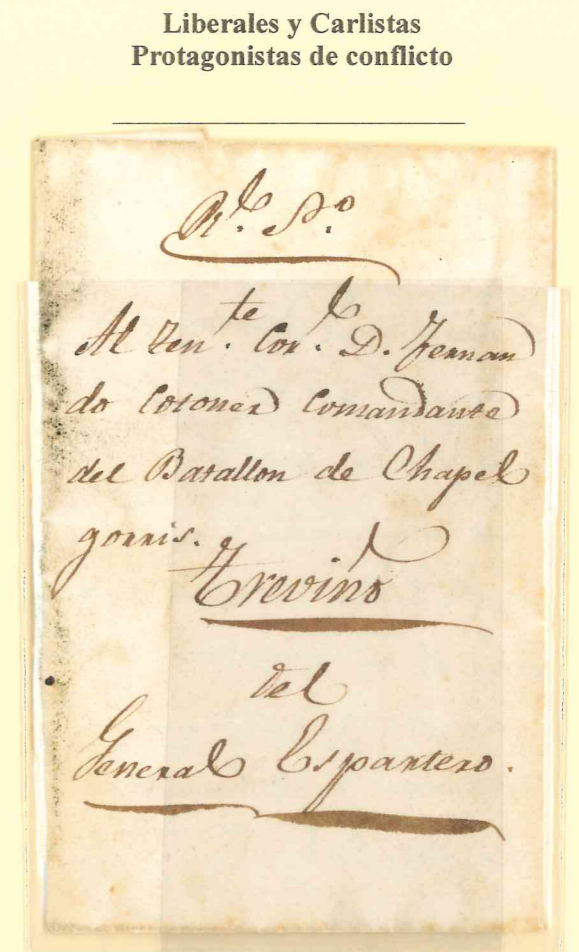 Liberales y Carlistas
Protagonistas de conflicto
Rl. So.
Al Tente. Corl. D. Fernan
do Cotoner Comandante
del Batallon de Chapel
gorris.
Treviño
del
General Espartero.